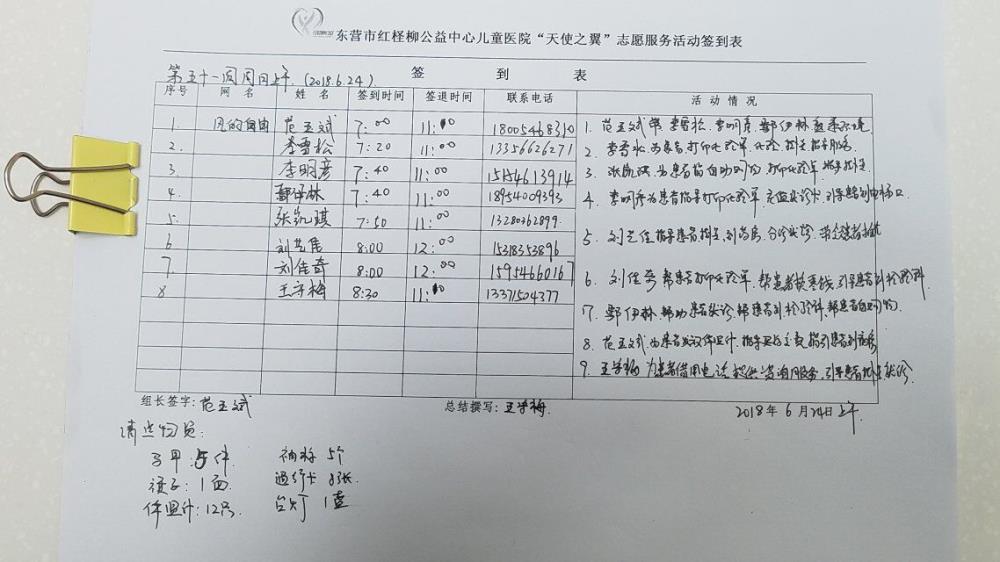 东营市红柽柳公益中心儿童医院“天使之翼”志愿服务活动签到表
第五十一周周日上午 (2018.6.24)
签 到 表
序号 网 名 姓 名 签到时间 签退时间 联系电话 活 动 情 况
1. 风的自由 范玉斌 7:00 11:10 18005468310
2. 李雪松 7:20 11:00 13356626271
3. 李明彦 7:40 11:00 15154613914
4. 鄂伊林 7:40 11:00 18954009393
5. 张凯琪 7:50 11:00 13280362899
6 刘艺佳 8:00 12:00 15318353896
7. 刘佳奇 8:00 12:00 15954660167
8 王学梅 8:30 11:10 13371504377
1. 范玉斌带李雪松、李明彦、鄂伊林熟悉环境
2. 李雪松为患者打印化验单
3. 张凯琪为患者 自助 打印化验单
4. 李明彦为患者指导打印化验单 就诊卡 引导患者到电梯口
5. 刘艺佳指导患者
6. 刘佳奇 帮患者打印化验单、帮患者换零钱、引导患者到检验科
7. 鄂伊林、帮助患者就诊、帮患者到检验科
8. 范玉斌、为患者 体温计、指导 缴费、指引患者到
9. 王学梅 为患者借用电话 提供咨询服务、引导患者 就诊
组长签字: 范玉斌 总结撰写: 王学梅 2018年 6月24日上午
清点物资:
马甲:5件 袖标 5个
旗子:1面 通行卡 8张
体温计:12只 台灯 1盏